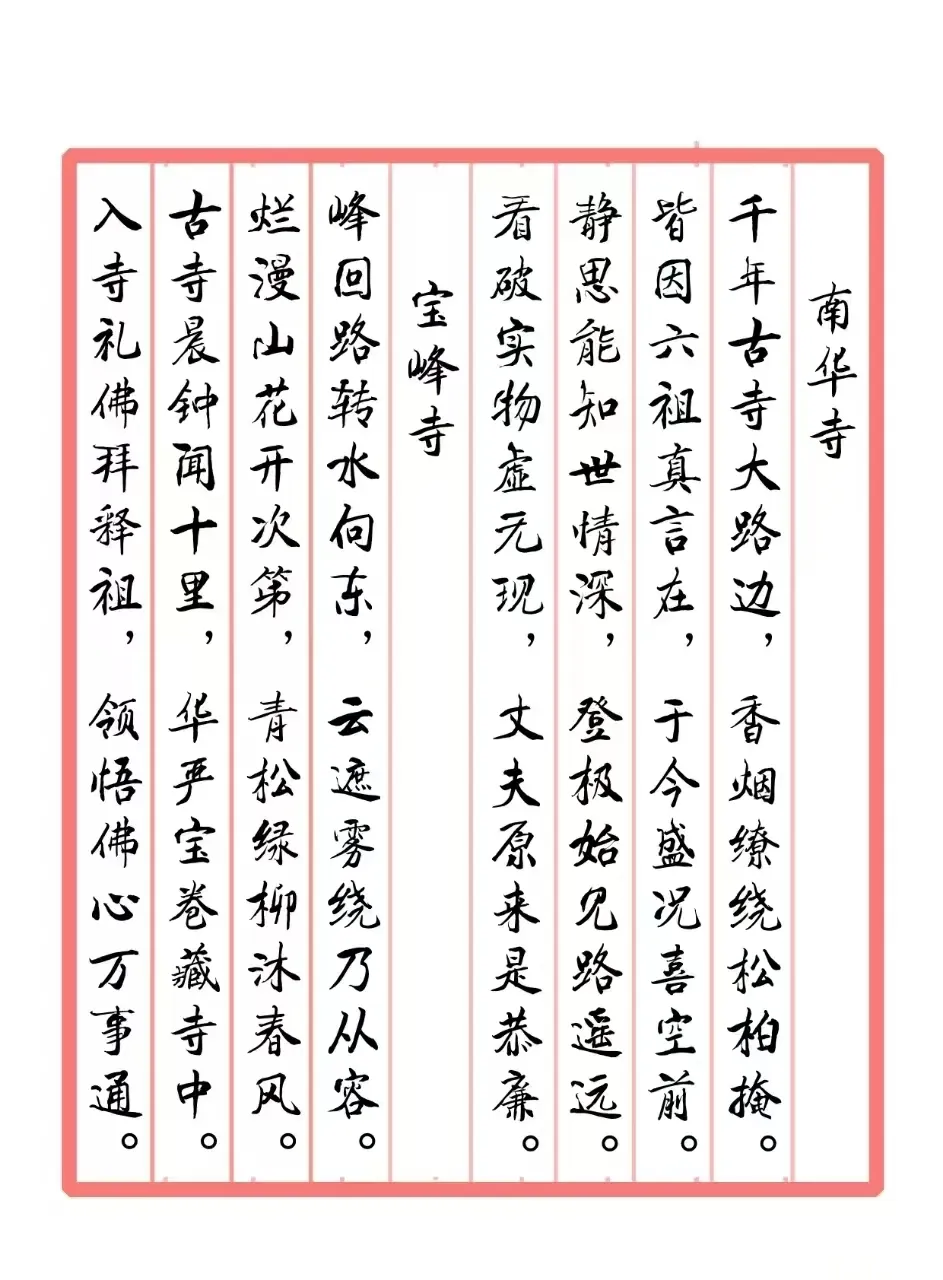 南华寺
千年古寺大路边，香烟缭绕松柏掩。
皆因六祖真言在，于今盛况喜空前。
静思能知世情深，登极始见路遥远。
看破实物虚无现，丈夫原来是恭廉。
宝峰寺
峰回路转水向东，云遮雾绕乃从容。
烂漫山花开次第，青松绿柳沐春风。
古寺晨钟闻十里，华严宝卷藏寺中。
入寺礼佛拜释祖，领悟佛心万事通。